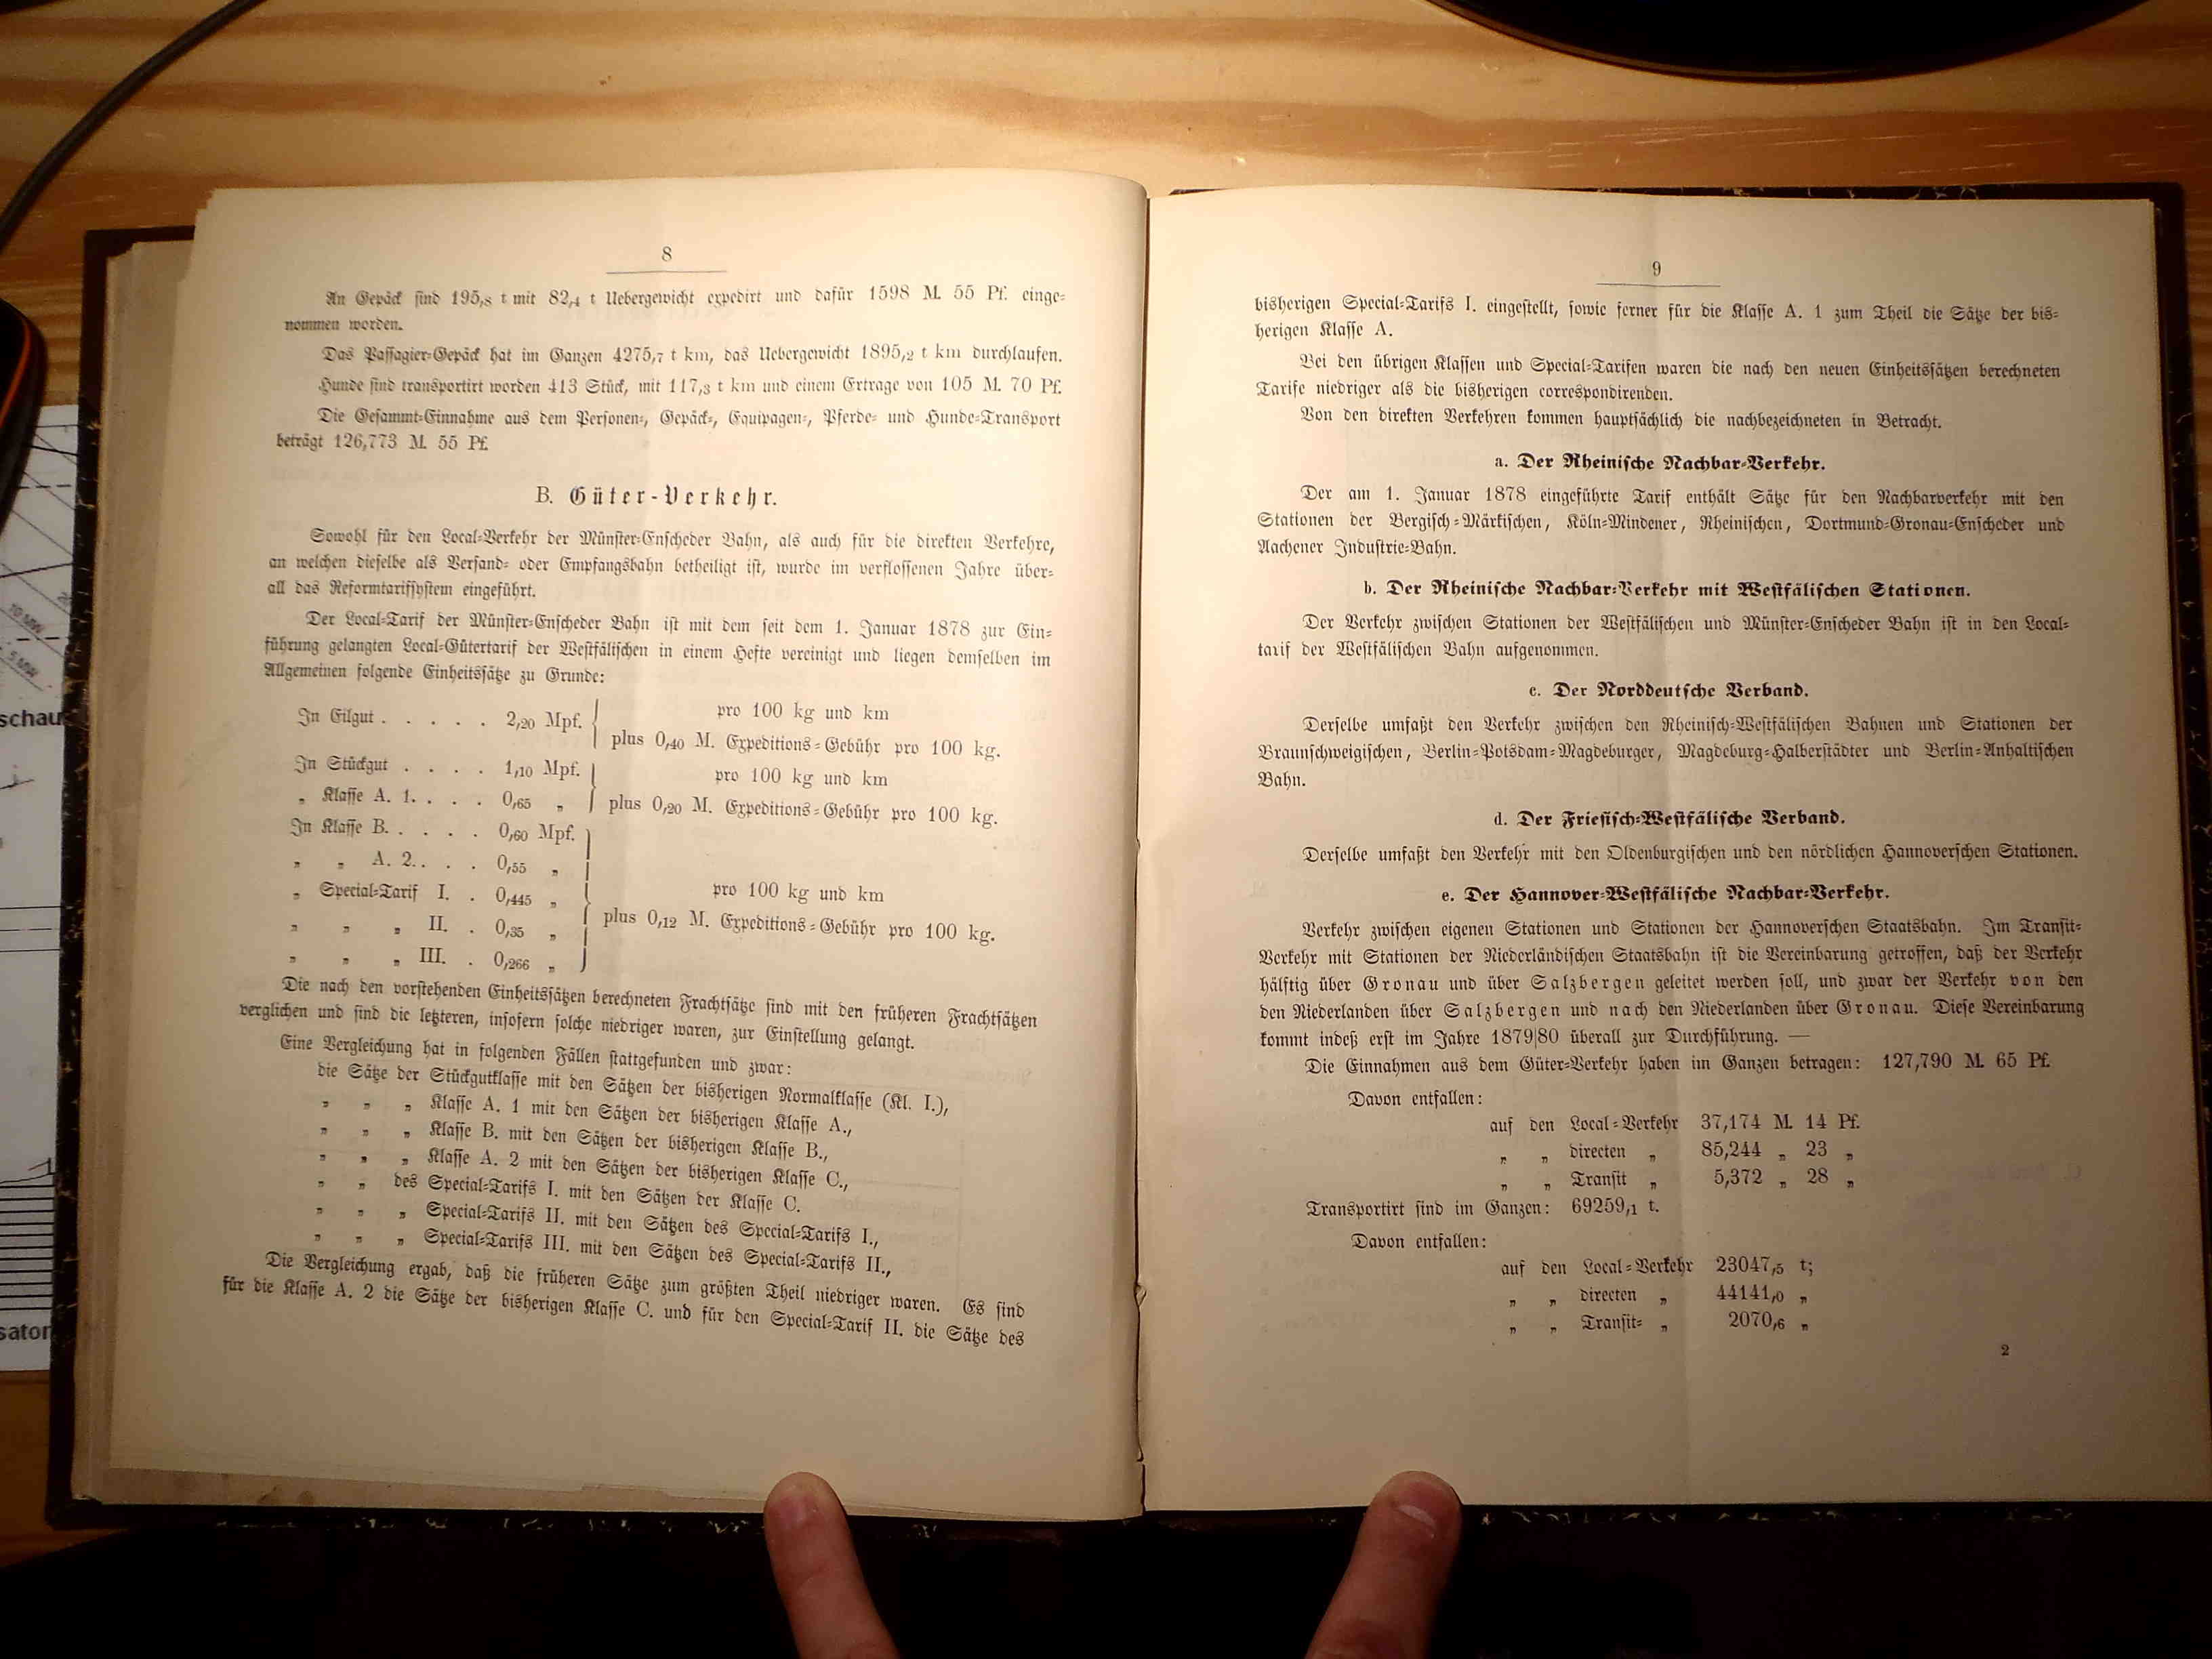 8
An Gepäck sind 195,8 t mit 82,4 t Uebergewicht expedirt und dafür 1598 M. 55 Pf. einge-
nommen worden.
Das Passagier-Gepäck hat im Ganzen 4275,7 t km, das Uebergewicht 1895,2 t km durchlaufen.
Hunde sind transportirt worden 413 Stück, mit 117,3 t km und einem Ertrage von 105 M. 70 Pf.
Die Gesammt-Einnahme aus dem Personen-, Gepäck-, Equipagen-, Pferde- und Hunde-Transport
beträgt 126,773 M. 55 Pf.
B. Güter-Verkehr.
Sowohl für den Local-Verkehr der Münster-Enscheder Bahn, als auch für die direkten Verkehre,
an welchen dieselbe als Versand- oder Empfangsbahn betheiligt ist, wurde im verflossenen Jahre über-
all das Reformtarifsystem eingeführt.
Der Local-Tarif der Münster-Enscheder Bahn ist mit dem seit dem 1. Januar 1878 zur Ein-
führung gelangten Local-Gütertarif der Westfälischen in einem Hefte vereinigt und liegen demselben im
Allgemeinen folgende Einheitssätze zu Grunde:
In Eilgut . . . . . 2,20 Mpf. pro 100 kg und km
plus 0,40 M. Expeditions-Gebühr pro 100 kg.
In Stückgut . . . . 1,10 Mpf. pro 100 kg und km
„ Klasse A. 1. . . . 0,65 „ plus 0,20 M. Expeditions-Gebühr pro 100 kg.
In Klasse B. . . . . 0,60 Mpf.
„ „ A. 2. . . . 0,55 „
„ Special-Tarif I. . 0,445 „ pro 100 kg und km
„ „ „ II. . 0,35 „ plus 0,12 M. Expeditions-Gebühr pro 100 kg.
„ „ „ III. . 0,266 „
Die nach den vorstehenden Einheitssätzen berechneten Frachtsätze sind mit den früheren Frachtsätzen
verglichen und sind die letzteren, insofern solche niedriger waren, zur Einstellung gelangt.
Eine Vergleichung hat in folgenden Fällen stattgefunden und zwar:
die Sätze der Stückgutklasse mit den Sätzen der bisherigen Normalklasse (Kl. I.),
„ „ „ Klasse A. 1 mit den Sätzen der bisherigen Klasse A.,
„ „ „ Klasse B. mit den Sätzen der bisherigen Klasse B.,
„ „ „ Klasse A. 2 mit den Sätzen der bisherigen Klasse C.,
„ „ des Special-Tarifs I. mit den Sätzen der Klasse C.
„ „ „ Special-Tarifs II. mit den Sätzen des Special-Tarifs I.,
„ „ „ Special-Tarifs III. mit den Sätzen des Special-Tarifs II.,
Die Vergleichung ergab, daß die früheren Sätze zum größten Theil niedriger waren. Es sind
für die Klasse A. 2 die Sätze der bisherigen Klasse C. und für den Special-Tarif II. die Sätze des
9
bisherigen Special-Tarifs I. eingestellt, sowie ferner für die Klasse A. 1 zum Theil die Sätze der bis-
herigen Klasse A.
Bei den übrigen Klassen und Special-Tarifen waren die nach den neuen Einheitssätzen berechneten
Tarife niedriger als die bisherigen correspondirenden.
Von den direkten Verkehren kommen hauptsächlich die nachbezeichneten in Betracht.
a. Der Rheinische Nachbar-Verkehr.
Der am 1. Januar 1878 eingeführte Tarif enthält Sätze für den Nachbarverkehr mit den
Stationen der Bergisch-Märkischen, Köln-Mindener, Rheinischen, Dortmund-Gronau-Enscheder und
Aachener Industrie-Bahn.
b. Der Rheinische Nachbar-Verkehr mit Westfälischen Stationen.
Der Verkehr zwischen Stationen der Westfälischen und Münster-Enscheder Bahn ist in den Local-
tarif der Westfälischen Bahn aufgenommen.
c. Der Norddeutsche Verband.
Derselbe umfaßt den Verkehr zwischen den Rheinisch-Westfälischen Bahnen und Stationen der
Braunschweigischen, Berlin-Potsdam-Magdeburger, Magdeburg-Halberstädter und Berlin-Anhaltischen
Bahn.
d. Der Friesisch-Westfälische Verband.
Derselbe umfaßt den Verkehr mit den Oldenburgischen und den nördlichen Hannoverschen Stationen.
e. Der Hannover-Westfälische Nachbar-Verkehr.
Verkehr zwischen eigenen Stationen und Stationen der Hannoverschen Staatsbahn. Im Transit-
Verkehr mit Stationen der Niederländischen Staatsbahn ist die Vereinbarung getroffen, daß der Verkehr
hälftig über Gronau und über Salzbergen geleitet werden soll, und zwar der Verkehr von den
den Niederlanden über Salzbergen und nach den Niederlanden über Gronau. Diese Vereinbarung
kommt indeß erst im Jahre 1879|80 überall zur Durchführung. —
Die Einnahmen aus dem Güter-Verkehr haben im Ganzen betragen: 127,790 M. 65 Pf.
Davon entfallen:
auf den Local-Verkehr 37,174 M. 14 Pf.
„ „ directen „ 85,244 „ 23 „
„ „ Transit „ 5,372 „ 28 „
Transportirt sind im Ganzen: 69259,1 t.
Davon entfallen:
auf den Local-Verkehr 23047,5 t;
„ „ directen „ 44141,0 „
„ „ Transit- „ 2070,6 „
2
schau
sator